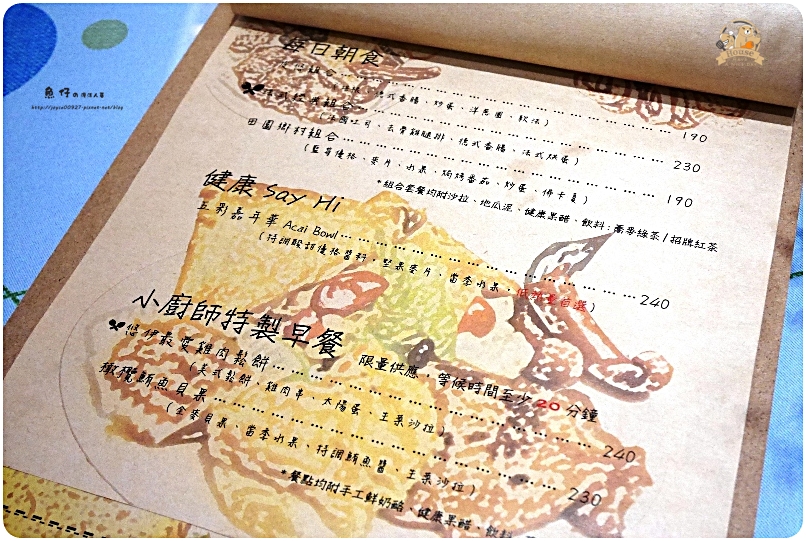 魚仔
http://joyce00527.pixnet.net/blog
House
每日朝食
組合 190
德式香腸、炒蛋、洋蔥圈、軟法
經典組合 230
(法國吐司、去骨雞腿排、德式香腸、法式烘蛋)
田園鄉村組合 190
(藍莓優格、麥片、水果、焗烤番茄、炒蛋、佛卡夏)
*組合套餐均附沙拉、地瓜泥、健康果醋、飲料:蕎麥綠茶/招牌紅茶
健康 Say Hi
五彩嘉年華 Acai Bowl 240
(特調酸甜優格醬料、堅果麥片、當季水果、自選)
小廚師特製早餐 限量供應,等候時間至少20分鐘
悠伊最愛雞肉鬆餅 240
(美式鬆餅、雞肉串、太陽蛋、生菜沙拉)
橄欖鮪魚貝果 230
(全麥貝果、當季水果、特調鮪魚醬、生菜沙拉)
*餐點均附手工鮮奶酪、健康果醋、飲料